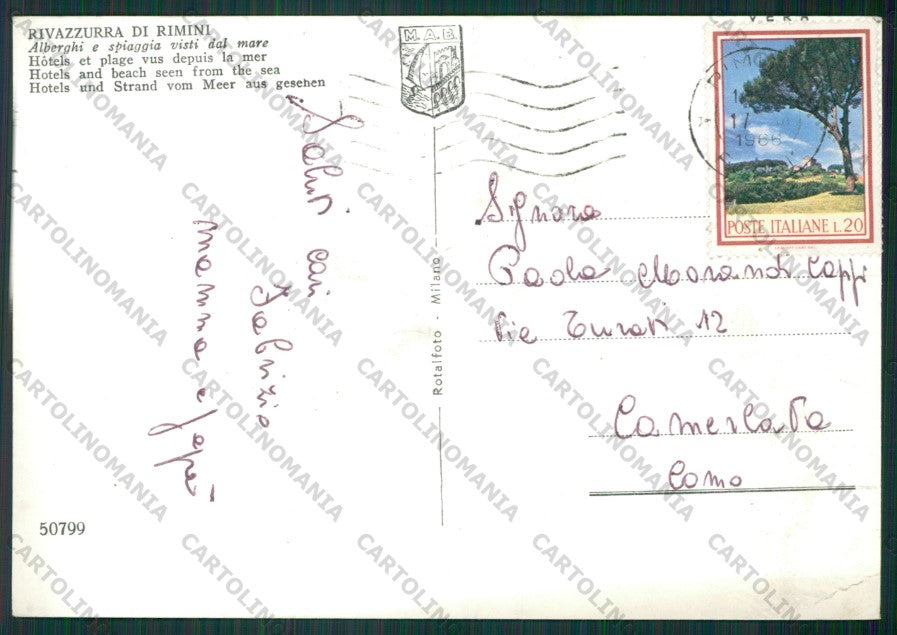 RIVAZZURRA DI RIMINI
Alberghi e spiaggia visti dal mare
Hôtels et plage vus depuis la mer
Hotels and beach seen from the sea
Hotels und Strand vom Meer aus gesehen
M.A.B
VERA
1966
POSTE ITALIANE L.20
Saluti cari
Fabrizio
mamma e papà
Rotalfoto - Milano
Signora
Paola Morandi Cappi
Via Turati 12
Camerlata
Como
50799
CARTOLINOMANIA